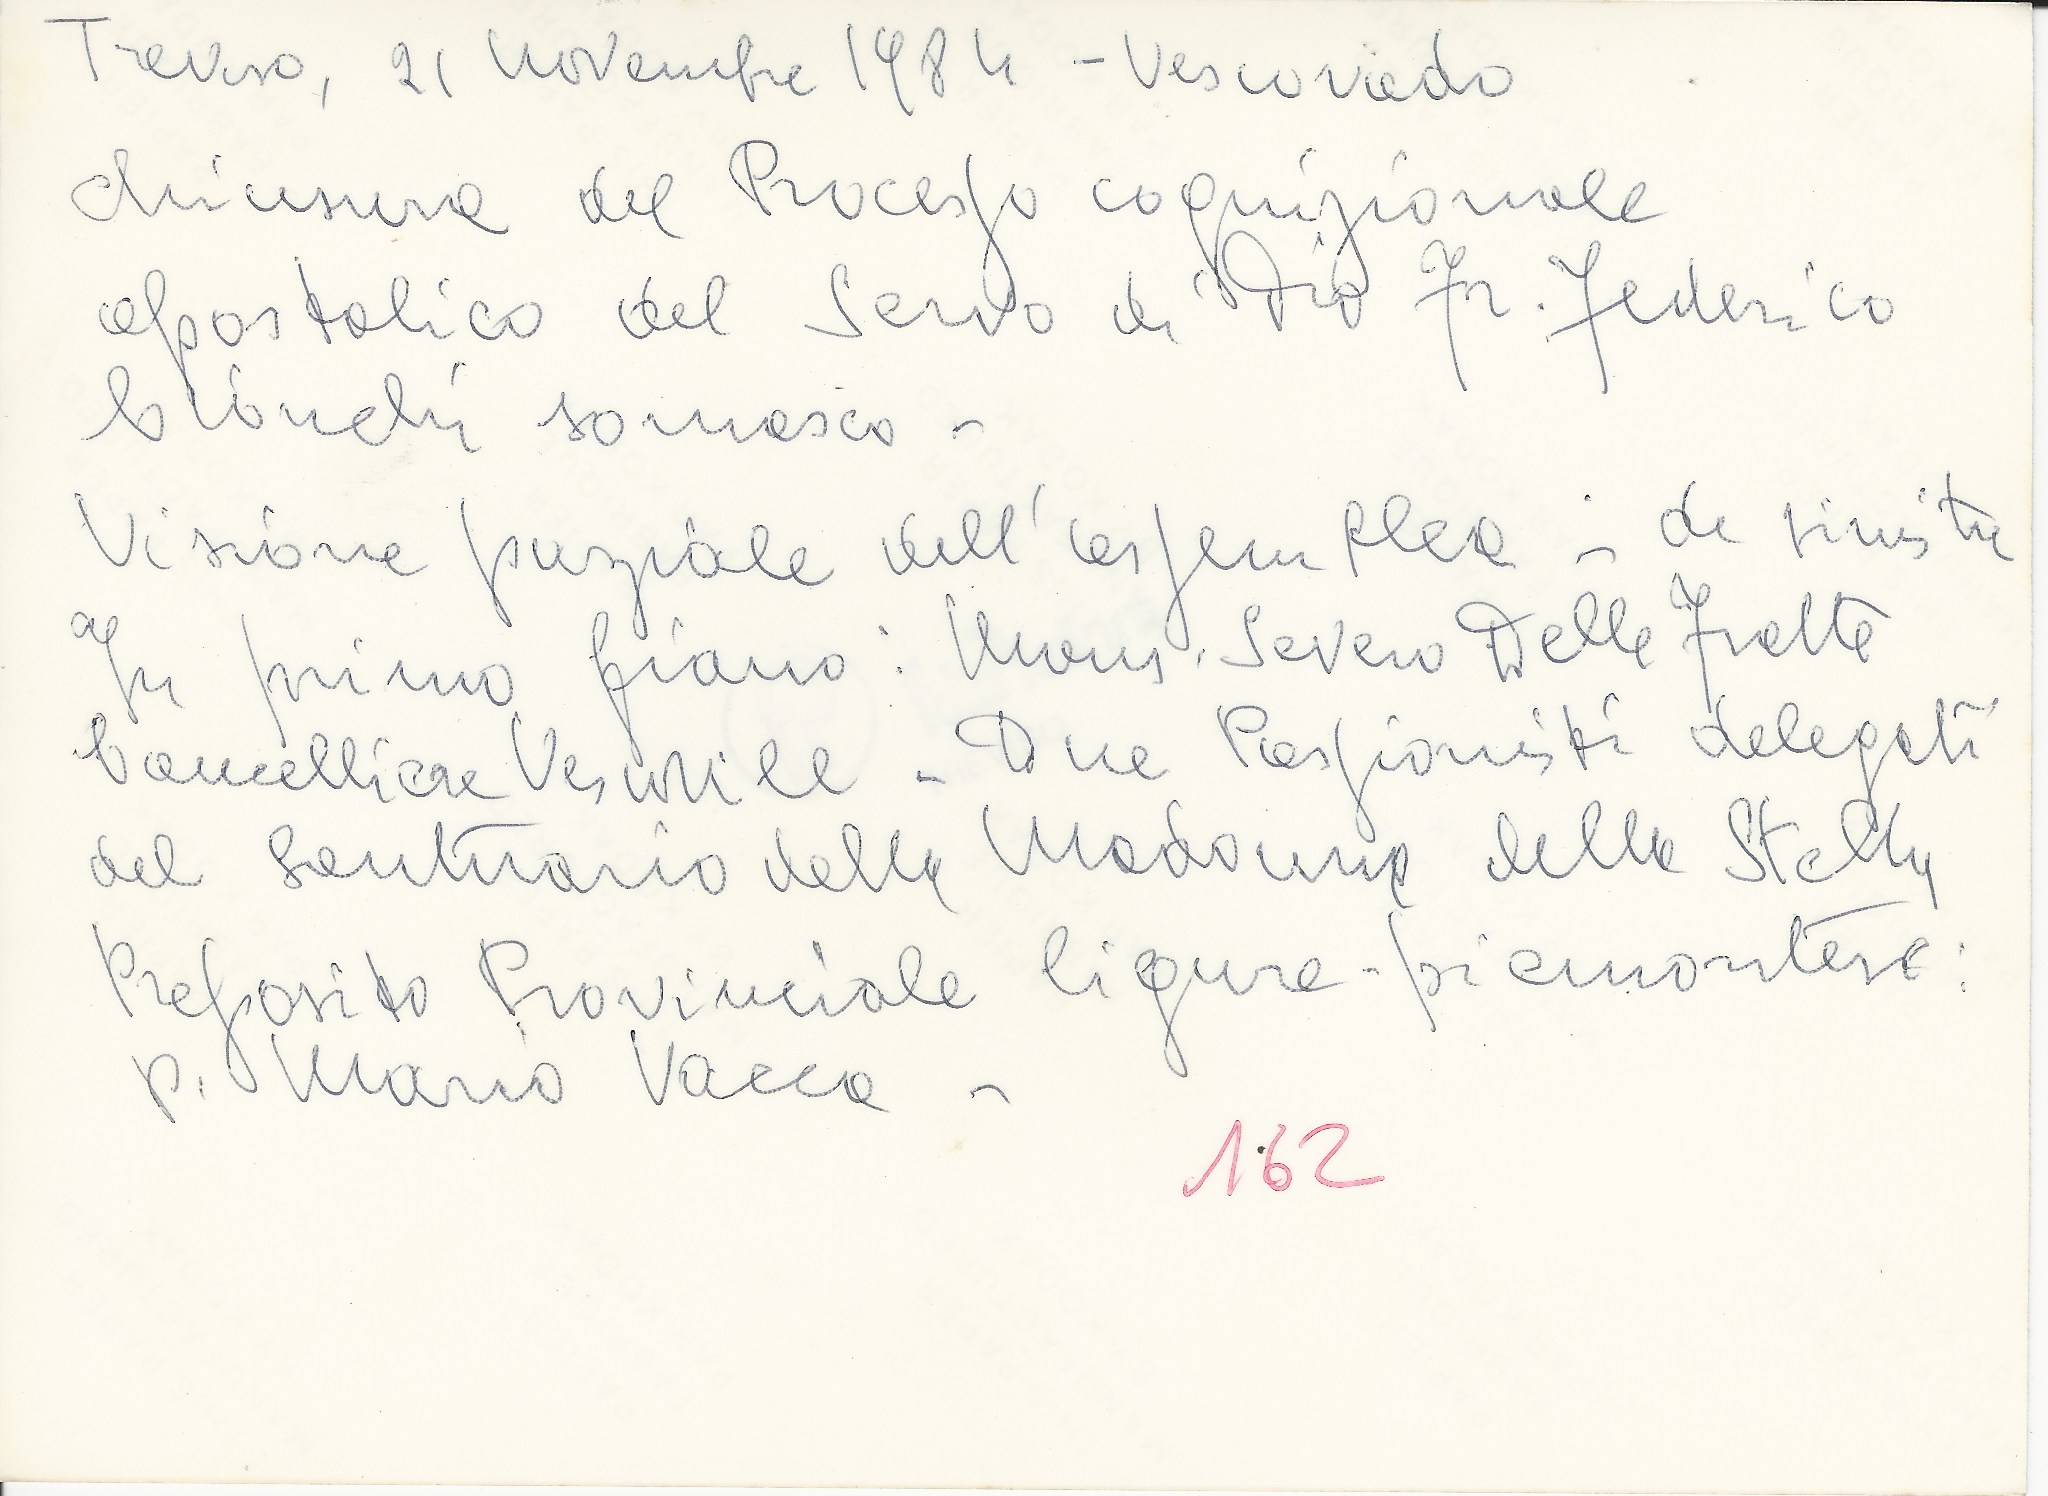 Treviso, 21 Novembre 1984 - Vescovado
Chiusura del Processo cognizionale
apostolico del Servo di Dio Fr. Federico
Cionchi somasco -
Visione parziale dell'assemblea - da sinistra
In primo piano: Mons. Severo Delle Fratte
Cancelliere Vescovile - Due Passionisti delegati
del Santuario della Madonna della Stella
Preposito Provinciale ligure-piemontese:
p. Mario Vacca -
162